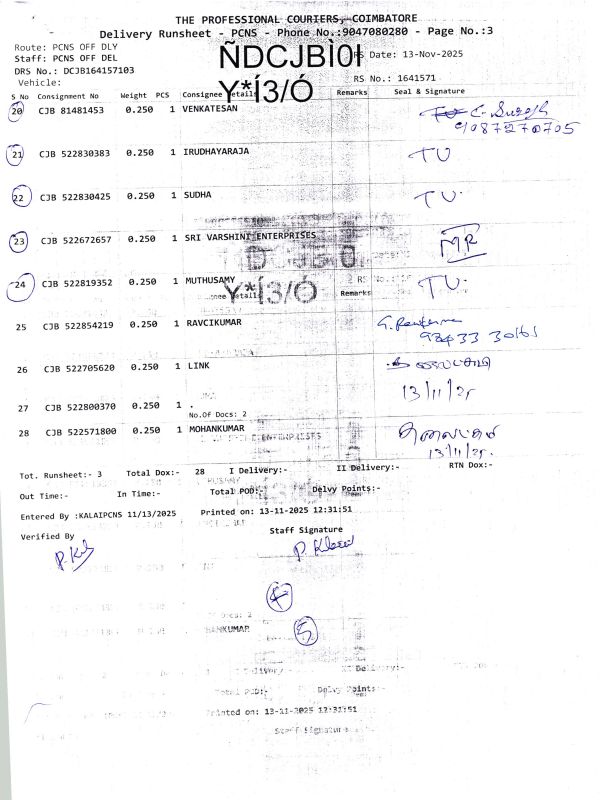 THE PROFESSIONAL COURIERS, COIMBATORE
Delivery Runsheet - PCNS - Phone No.:9047080280 - Page No.:3
Route: PCNS OFF DLY
ÑDCJBÌ0I
RS Date: 13-Nov-2025
Staff: PCNS OFF DEL
DRS No.: DCJB164157103
RS No.: 1641571
Vehicle:
Y*Í3/Ó
S No Consignment No Weight PCS Consignee Details Remarks Seal & Signature
20 CJB 81481453 0.250 1 VENKATESAN
9087270705
21 CJB 522830383 0.250 1 IRUDHAYARAJA TU
22 CJB 522830425 0.250 1 SUDHA TU.
23 CJB 522672657 0.250 1 SRI VARSHINI ENTERPRISES MR
24 CJB 522819352 0.250 1 MUTHUSAMY TU.
Y*Í3/Ó Remarks
25 CJB 522854219 0.250 1 RAVCIKUMAR
26 CJB 522705620 0.250 1 LINK
13/11/25
27 CJB 522800370 0.250 1 .
No.Of Docs: 2
28 CJB 522571800 0.250 1 MOHANKUMAR
13/11/25.
Tot. Runsheet:- 3 Total Dox:- 28 I Delivery:- II Delivery:- RTN Dox:-
Out Time:- In Time:- Total POD:- Delvy Points:-
Entered By :KALAIPCNS 11/13/2025 Printed on: 13-11-2025 12:31:51
Verified By Staff Signature
5
HANKUMAR
Total POD:- Delvy Points:-
Printed on: 13-11-2025 12:31:51
Staff Signature